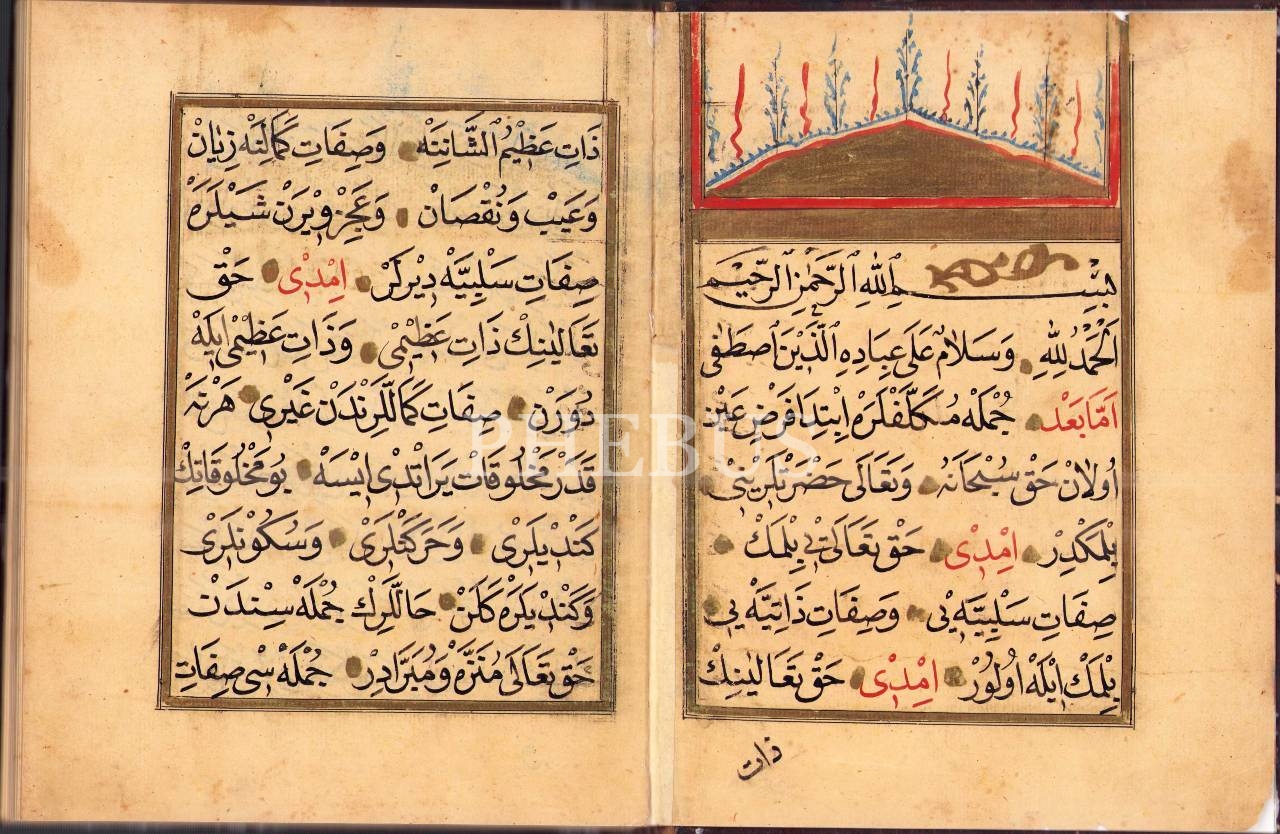 بِسْمِ اللهِ الرَّحْمٰنِ الرَّحِيْمِ
اَلْحَمْدُ لِلّٰهِ وَسَلَامٌ عَلَى عِبَادِهِ الَّذِيْنَ اصْطَفٰى
اَمَّا بَعْدُ جُمْلَه مُكَلَّفْلَرَه اِبْتِدَا فَرْضِ عَيْن
اُولَانْ حَقْ سُبْحَانَهُ وَتَعَالَى حَضْرَتْلَرِيْنِى
بِلْمَكْدِرْ اِمْدِى حَقْ تَعَالَى يِى بِلْمَكْ
صِفَاتِ سَلْبِيَّه يِى وَصِفَاتِ ذَاتِيَّه يِى
بِلْمَكْ اِيلَه اُولُورْ اِمْدِى حَقْ تَعَالٰينِكْ
ذات
ذَاتِ عَظِيْمُ الشَّانِنَه وَصِفَاتِ كَمَالِنَه زِيَانْ
وَعَيْبْ وَنُقْصَانْ وَعَجِزْ وِيْرَنْ شَيْلَرَه
صِفَاتِ سَلْبِيَّه دِيْرلَرْ اِمْدِى حَقْ
تَعَالٰينِكْ ذَاتِ عَظِيْمِى وَذَاتِ عَظِيْمِى اِيلَه
دُورَنْ صِفَاتِ كَمَاللَرِنْدَنْ غَيْرِى هَرْ نَه
قَدَرْ مَخْلُوقَاتْ يَرَاتْدِى اِيْسَه بُو مَخْلُوقَاتِكْ
كَنْدِيلَرِى وَحَرَكَتْلَرِى وَسُكُونْلَرِى
وَكَنْدِيلَرَه كَلَنْ حَاللَرِكْ جُمْلَه سِنْدَنْ
حَقْ تَعَالَى مُنَزَّه وَمُبَرَّادِرْ جُمْلَه سِى صِفَاتِ
PHEBUS